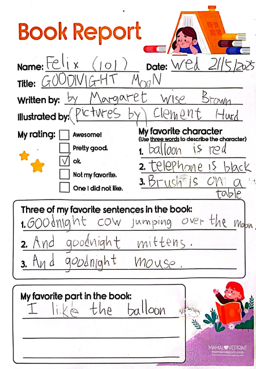 Book Report
Name: Felix (101) Date: Wed 21/5/2025
Title: GOODNIGHT MOON
Written by: by Margaret Wise Brown
Illustrated by: (pictures by) Clement Hurd
My rating:
Awesome!
Pretty good.
ok.
Not my favorite.
One I did not like.
My favorite character
(Use three words to describe the character)
1. balloon is red
2. telephone is black
3. Brush is on a
table
Three of my favorite sentences in the book:
1. Goodnight cow jumping over the moon.
2. And goodnight mittens.
3. And goodnight mouse.
My favorite part in the book:
I like the balloon